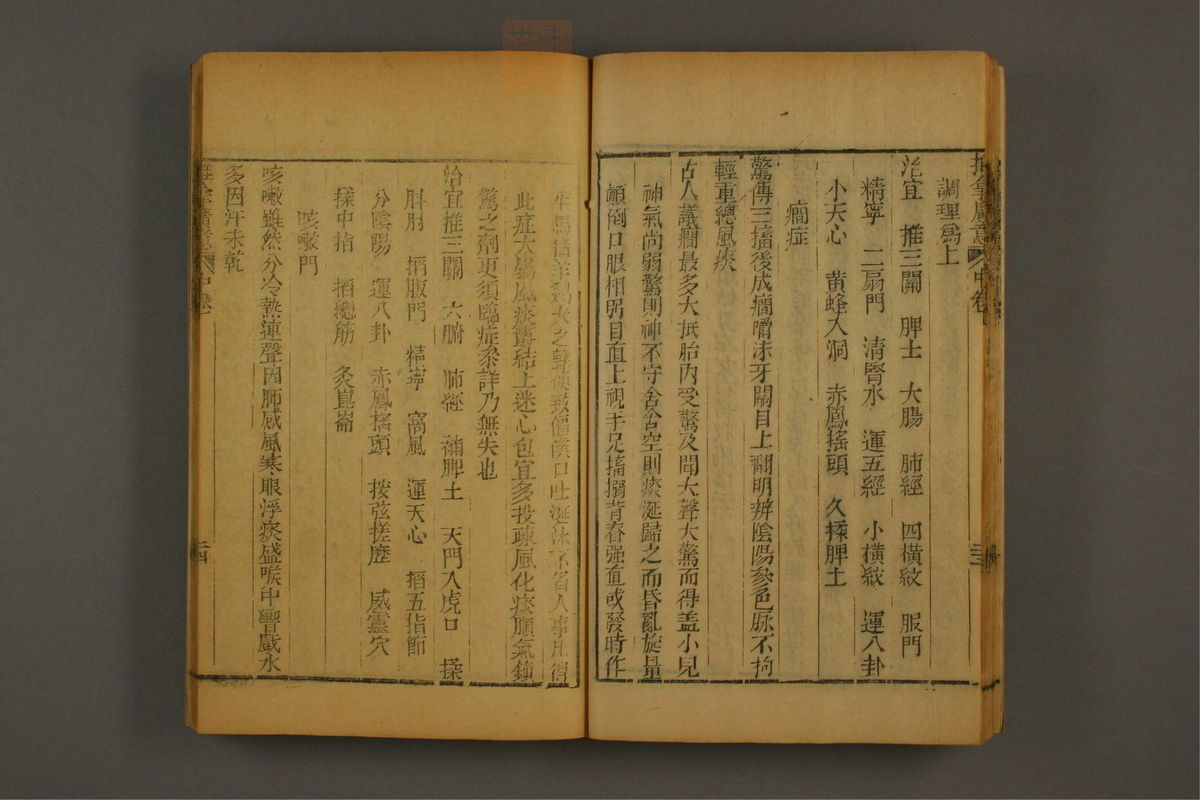 調理爲上
治宜　推三關　脾士　大腸　肺經　四橫紋　服門
精寧　二扇門　清腎水　運五經　小橫紋　運八卦
小天心　黃蜂入洞　赤鳳搖頭　久揉脾土
癎症
驚傳三搐後成癎嚼沫牙關目上翻明辨陰陽叅色脉不拘
輕重總風痰
古人議癎最多大抵胎內受驚及聞大聲大驚而得盖小兒
神氣尚弱驚則神不守舍舍空則痰涎歸之而昏亂旋暈
顛倒口眼相引目直上視手足搐搦背脊强直或發時作
牛馬猪羊 之聲便致僵僕口吐涎沫不省人事
此症大屬風痰欝結上迷心包宜多投疎風化痰順氣鎮
驚之劑更須臨症叅詳乃無失也
治宜推三關　六腑　肺經　補脾土　天門入虎口　揉
䏏肘　掐版門　精寧　窩風　運天心　掐五指節
分陰陽　運八卦　赤鳳搖頭　按弦搓摩　威靈穴
揉中指　掐總筋　灸崑崙
咳嗽門
咳嗽雖然分冷熱連聲因肺感風寒眼浮痰盛喉中響戲水
多因汗未乾
中卷